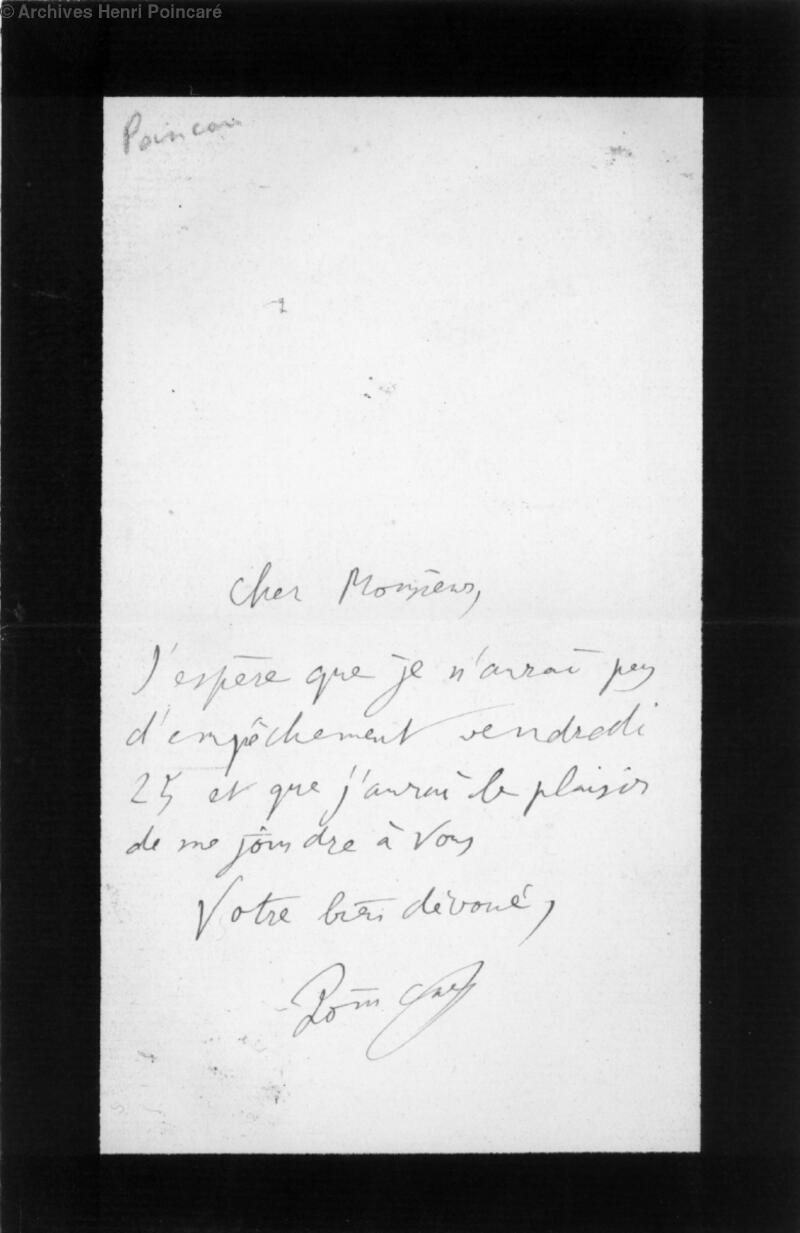 © Archives Henri Poincaré
Poincaré
Cher Monsieur,
J'espère que je n'aurai pas
d'empêchement vendredi
25 et que j'aurai le plaisir
de me joindre à vous
Votre bien dévoué,
Poincaré